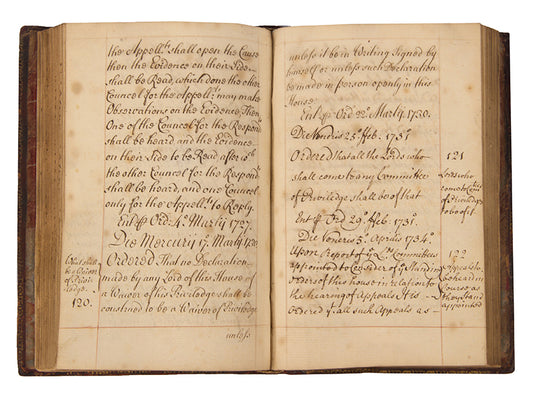 the Appell.ts shall open the Cause
then the Evidence on their Side
shall be Read, which done the other
Councel for the Appell.ts may make
Observations on the Evidence, Then
One of the Councel for the Respond.ts
shall be heard and the Evidence
on their Side to be Read after wch
the other Councel for the Respond.ts
shall be heard, and one Councel
only for the Appell.ts to Reply.
Ent.d p Ord: 4.o Martij 1727.
Die Mercurij 17.o Martij
Ordered That no Declaration
made by any Lord of this House of
a Waiver of his Priviledge shall be
construed to be a Waiver of Priviledge
be a
of
120.
unless
unless it be in Writing Signed by
himself or unless such Declaration
be made in person openly in this
House
Ent.d p Ord 22.o Martij 1730.
Die Veneris 25.o Feb. 1731.
Ordered that all the Lords who
shall come to any Committee
of Priviledge shall be of that
Ent.d p Ord 29.o Feb. 1731.
Die Veneris 5.o Aprilis 1734.
Upon Report of ye L.ds Committees
appointed to Consider of ye Standing
Orders of this house in relation to
the hearing of Appeals It is
Ordered yt. all such Appeals as
121
Lords who
come to
of Priviledge
to be of it
122
Appeals to
be heard in
Course as
they stand
appointed